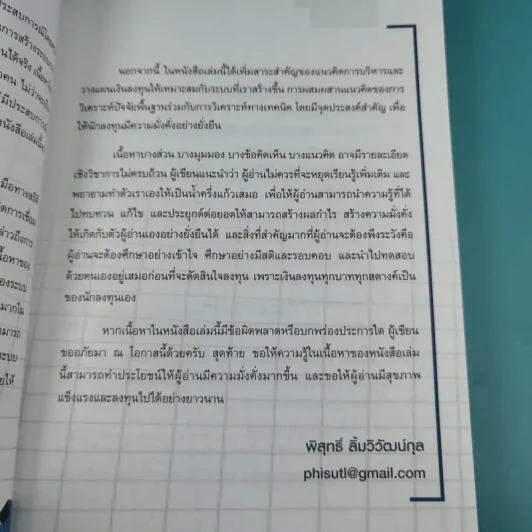 นอกจากนี้ ในหนังสือเล่มนี้ได้เพิ่มสาระสำคัญของแนวคิดการบริหารและ
วางแผนเงินลงทุนให้เหมาะสมกับระบบที่เราสร้างขึ้น การผสมผสานแนวคิดของการ
วิเคราะห์ปัจจัยพื้นฐานร่วมกับการวิเคราะห์ทางเทคนิค โดยมีจุดประสงค์สำคัญ เพื่อ
ให้นักลงทุนมีความมั่งคั่งอย่างยั่งยืน
เนื้อหาบางส่วน บางมุมมอง บางข้อคิดเห็น บางแนวคิด อาจมีรายละเอียด
เชิงวิชาการไม่ครบถ้วน ผู้เขียนแนะนำว่า ผู้อ่านไม่ควรที่จะหยุดเรียนรู้เพิ่มเติม และ
พยายามทำตัวเราเองให้เป็นน้ำครึ่งแก้วเสมอ เพื่อให้ผู้อ่านสามารถนำความรู้ที่ได้
ไปทบทวน แก้ไข และประยุกต์ต่อยอดให้สามารถสร้างผลกำไร สร้างความมั่งคั่ง
ให้เกิดกับตัวผู้อ่านเองอย่างยั่งยืนได้ และสิ่งที่สำคัญมากที่ผู้อ่านจะต้องพึงระวังคือ
ผู้อ่านจะต้องศึกษาอย่างเข้าใจ ศึกษาอย่างมีสติและรอบคอบ และนำไปทดสอบ
ด้วยตนเองอยู่เสมอก่อนที่จะตัดสินใจลงทุน เพราะเงินลงทุนทุกบาททุกสตางค์เป็น
ของนักลงทุนเอง
หากเนื้อหาในหนังสือเล่มนี้มีข้อผิดพลาดหรือบกพร่องประการใด ผู้เขียน
ขออภัยมา ณ โอกาสนี้ด้วยครับ สุดท้าย ขอให้ความรู้ในเนื้อหาของหนังสือเล่ม
นี้สามารถทำประโยชน์ให้ผู้อ่านมีความมั่งคั่งมากขึ้น และขอให้ผู้อ่านมีสุขภาพ
แข็งแรงและลงทุนไปได้อย่างยาวนาน
พิสุทธิ์ ลิ้มวิวัฒน์กุล
phisutl@gmail.com